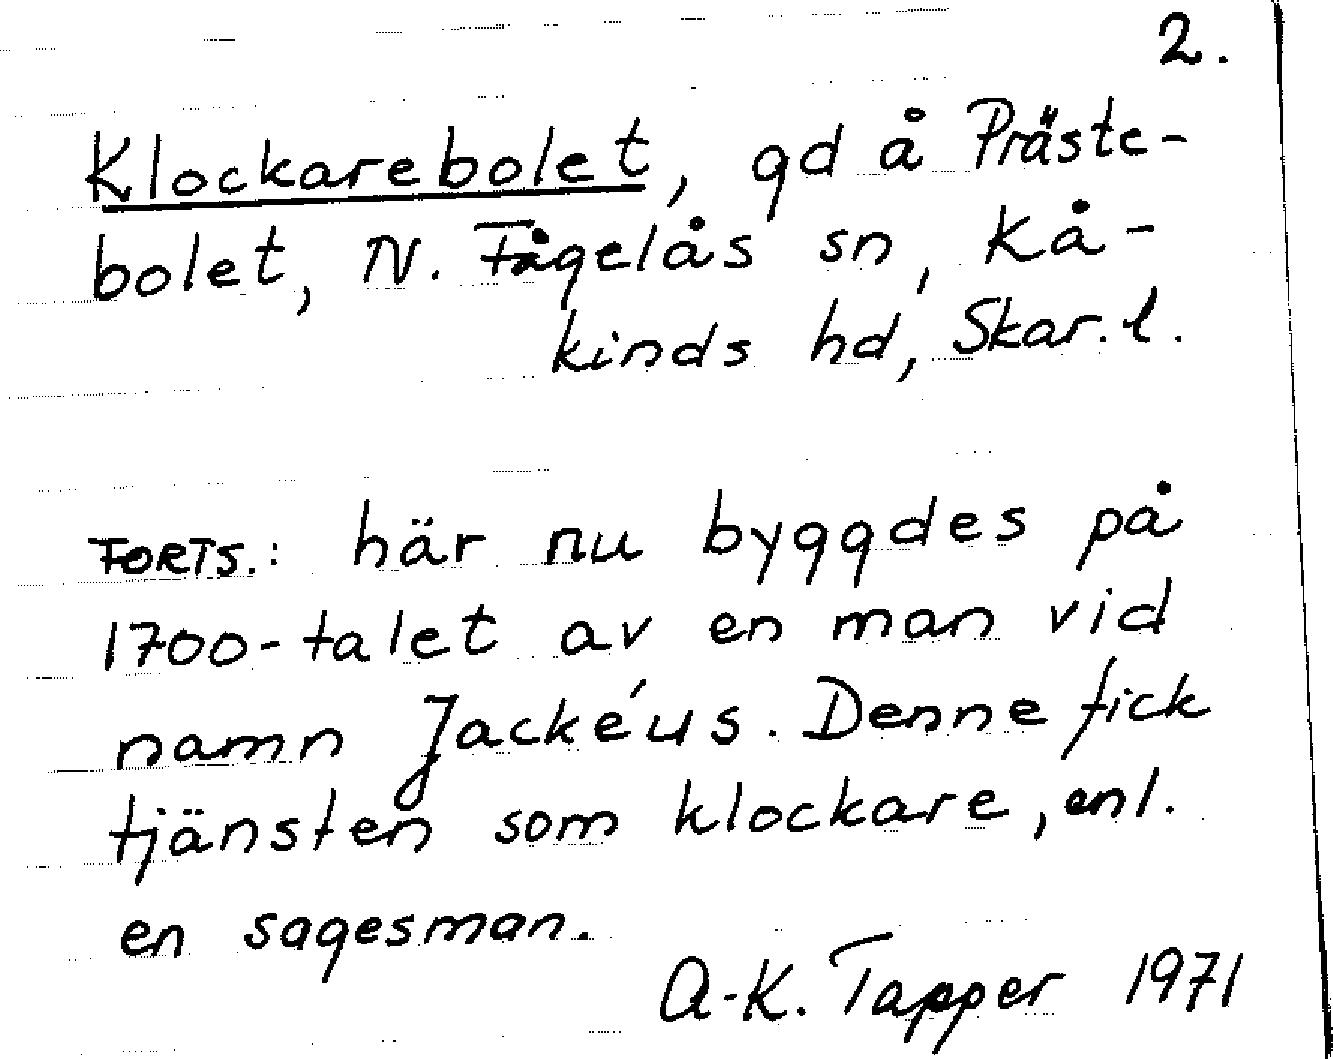 2.
Klockarebolet, gd å Präste-
bolet, N. Fågelås sn, Kå-
kinds hd, Skar. l.
FORTS.: här nu byggdes på
1700-talet av en man vid
namn Jackéus. Denne fick
tjänsten som klockare, enl.
en sagesman.
A-K. Tapper 1971